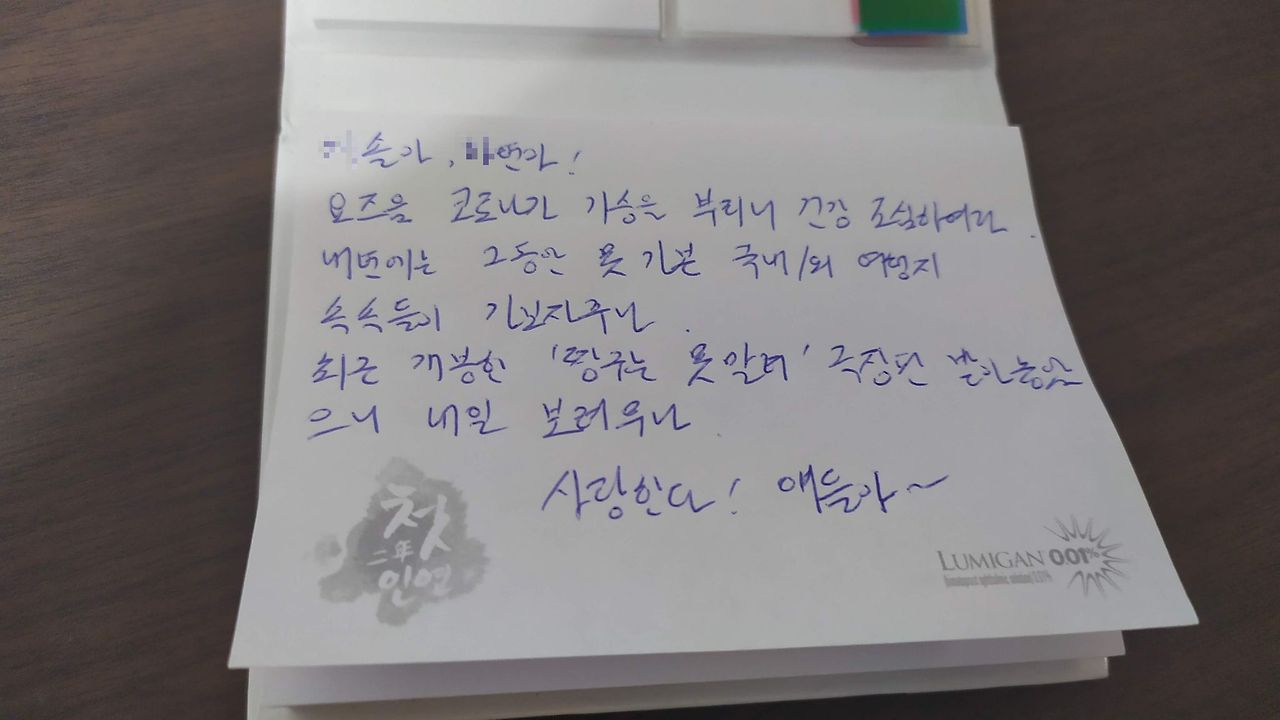 솔아, 연아!
요즈음 코로나가 기승을 부리니 건강 조심하여라.
내년에는 그동안 못 가본 국내/외 여행지
속속들이 가보자꾸나.
최근 개봉한 '짱구는 못말려' 극장판 받아놓았
으니 내일 보려무나.
사랑한다! 얘들아~
첫
二年
인연
LUMIGAN 0.01%